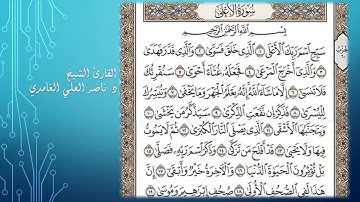 سُورَةُ الأَعْلَى
بِسْمِ اللَّهِ الرَّحْمَٰنِ الرَّحِيمِ
سَبِّحِ اسْمَ رَبِّكَ الْأَعْلَى ١ الَّذِي خَلَقَ فَسَوَّىٰ ٢ وَالَّذِي قَدَّرَ فَهَدَىٰ
٣ وَالَّذِي أَخْرَجَ الْمَرْعَىٰ ٤ فَجَعَلَهُ غُثَاءً أَحْوَىٰ ٥ سَنُقْرِئُكَ
فَلَا تَنسَىٰ ٦ إِلَّا مَا شَاءَ اللَّهُ إِنَّهُ يَعْلَمُ الْجَهْرَ وَمَا يَخْفَىٰ ٧ وَنُيَسِّرُكَ
لِلْيُسْرَىٰ ٨ فَذَكِّرْ إِن نَّفَعَتِ الذِّكْرَىٰ ٩ سَيَذَّكَّرُ مَن يَخْشَىٰ ١٠
وَيَتَجَنَّبُهَا الْأَشْقَى ١١ الَّذِي يَصْلَى النَّارَ الْكُبْرَىٰ ١٢ ثُمَّ لَا يَمُوتُ
فِيهَا وَلَا يَحْيَىٰ ١٣ قَدْ أَفْلَحَ مَن تَزَكَّىٰ ١٤ وَذَكَرَ اسْمَ رَبِّهِ فَصَلَّىٰ ١٥
بَلْ تُؤْثِرُونَ الْحَيَاةَ الدُّنْيَا ١٦ وَالْآخِرَةُ خَيْرٌ وَأَبْقَىٰ ١٧ إِنَّ
هَٰذَا لَفِي الصُّحُفِ الْأُولَىٰ ١٨ صُحُفِ إِبْرَاهِيمَ وَمُوسَىٰ ١٩
القارئ الشيخ
د ناصر العلي الغامدي